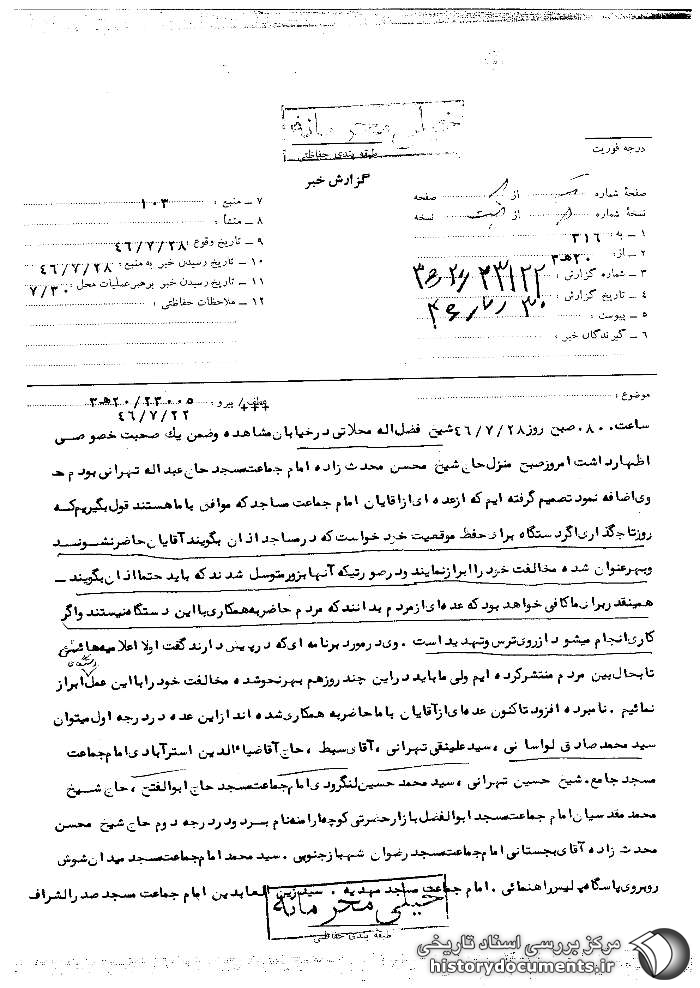 خیلی محرمانه
طبقه بندی حفاظتی
درجه فوریت
گزارش خبر
صفحهٔ شماره از صفحه
نسخهٔ شماره از نسخه
۱ ـ به : ۳۱۶
۲ ـ از: ۲۰ه‍۳
۳ ـ شماره گزارش :
۴ ـ تاریخ گزارش :
۵ ـ پیوست :
۶ ـ گیرندگان خبر :
۷ ـ منبع : ۱۰۳
۸ ـ منشأ :
۹ ـ تاریخ وقوع : ۴۶/۷/۲۸
۱۰ ـ تاریخ رسیدن خبر به منبع : ۴۶/۷/۲۸
۱۱ ـ تاریخ رسیدن خبر برهبرعملیات محل : ۷/۳۰
۱۲ ـ ملاحظات حفاظتی :
موضوع :
عطف/ پیرو : ۲۳۰۰۵/ ۲۰ه‍۳
۴۶/۷/۲۲
ساعت ۰۸۰۰ صبح روز ۴۶/۷/۲۸ شیخ فضل اله محلاتی درخیابان مشاهده وضمن یك صحبت خصوصی
اظهارداشت امروزصبح منزل حاج شیخ محسن محدث زاده امام جماعت مسجد حاج عبداله تهرانی بودم
وی اضافه نمود تصمیم گرفته ایم که ازعده ای ازاقایان امام جماعت مساجد که موافق باماهستند قول بگیریم که
روزتاجگذاری اگردستگاه برای حفظ موقعیت خود خواست که درمساجد اذان بگویند آقایان حاضرنشوند
وبهرعنوان شده مخالفت خود را ابرازنمایند ودرصورتیکه آنها بزورمتوسل شدند که باید حتما اذان بگویند ـ
همینقدربرای ماکافی خواهد بود که عده ای ازمردم بدانند که مردم حاضربه همکاری با این دستگاه نیستند واگر
کاری انجام میشود ازروی ترس وتهدید است . وی درمورد برنامه ای که درپیش دارند گفت اولا اعلامیه هائی
تابحال بین مردم منتشرکرده ایم ولی ما باید دراین چند روزهم بهرنحوشده مخالفت خود را با این عمل ابراز
نمائیم . نامبرده افزود تاکنون عده ای ازآقایان باما حاضربه همکاری شده اند ازاین عده دردرجه اول میتوان
سید محمد صادق لواسانی ، سید علینقی تهرانی ، آقای سبط ، حاج آقاضیاءالدین استرآبادی امام جماعت
مسجد جامع . شیخ حسین تهرانی ، سید محمد حسین لنگرودی امام جماعت مسجد حاج ابوالفتح ، حاج شیخ
محمد مقدسیان امام جماعت مسجد ابوالفضل بازارحضرتی کوچه ارامنه نام برد ودردرجه دوم حاج شیخ محسن
محدث زاده آقای بجستانی امام جماعت مسجد رضوان شهباز جنوبی . سید محمد امام جماعت مسجد میدان شوش
روبروی پاسگاه پلیس راهنمائی . امام جماعت مساجد مهدیه . سید زین العابدین امام جماعت مسجد صدرالشراف
خیلی محرمانه
طبقه بندی حفاظتی
مرکز بررسی اسناد تاریخی
historydocuments.ir